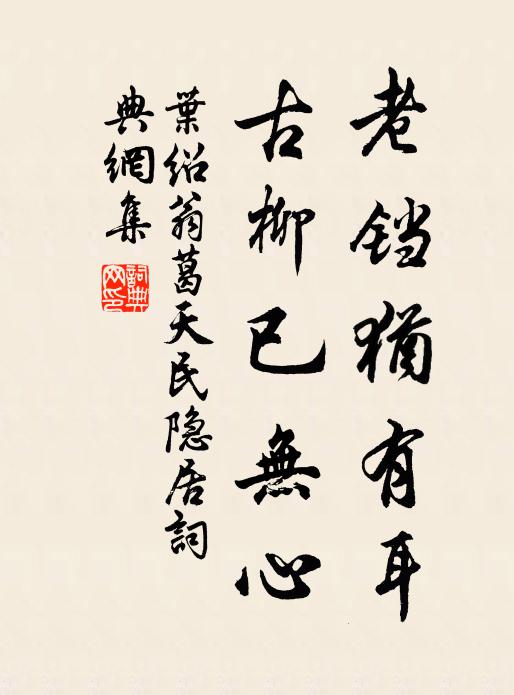 老铛猶有耳
古柳已無心
葉紹翁葛天民隐居詞
典網集
詞典網印